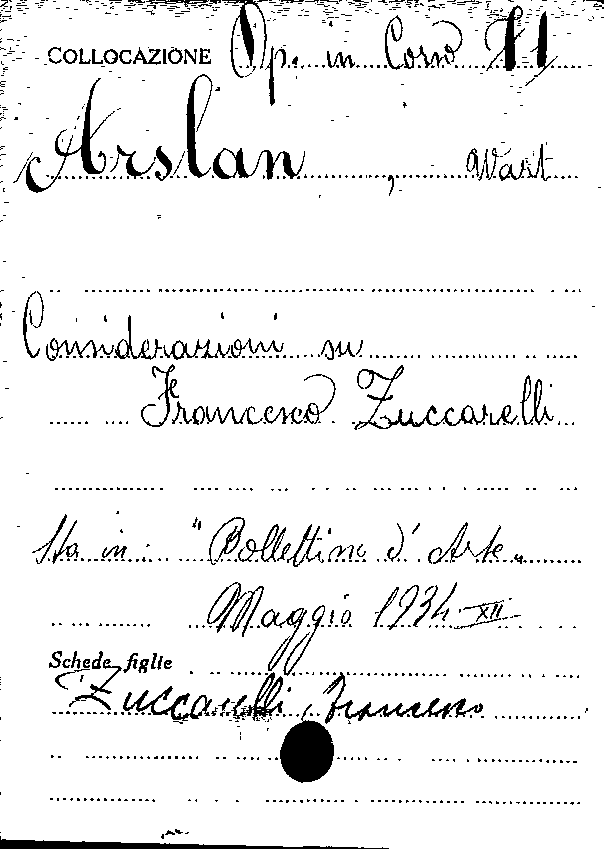 COLLOCAZIONE Op. in Corso 71
Arslan, Wart
Considerazioni su
Francesco Zuccarelli
Sta in: "Bollettino d'Arte"
Maggio 1934-XII
Schede figlie
Zuccarelli, Francesco